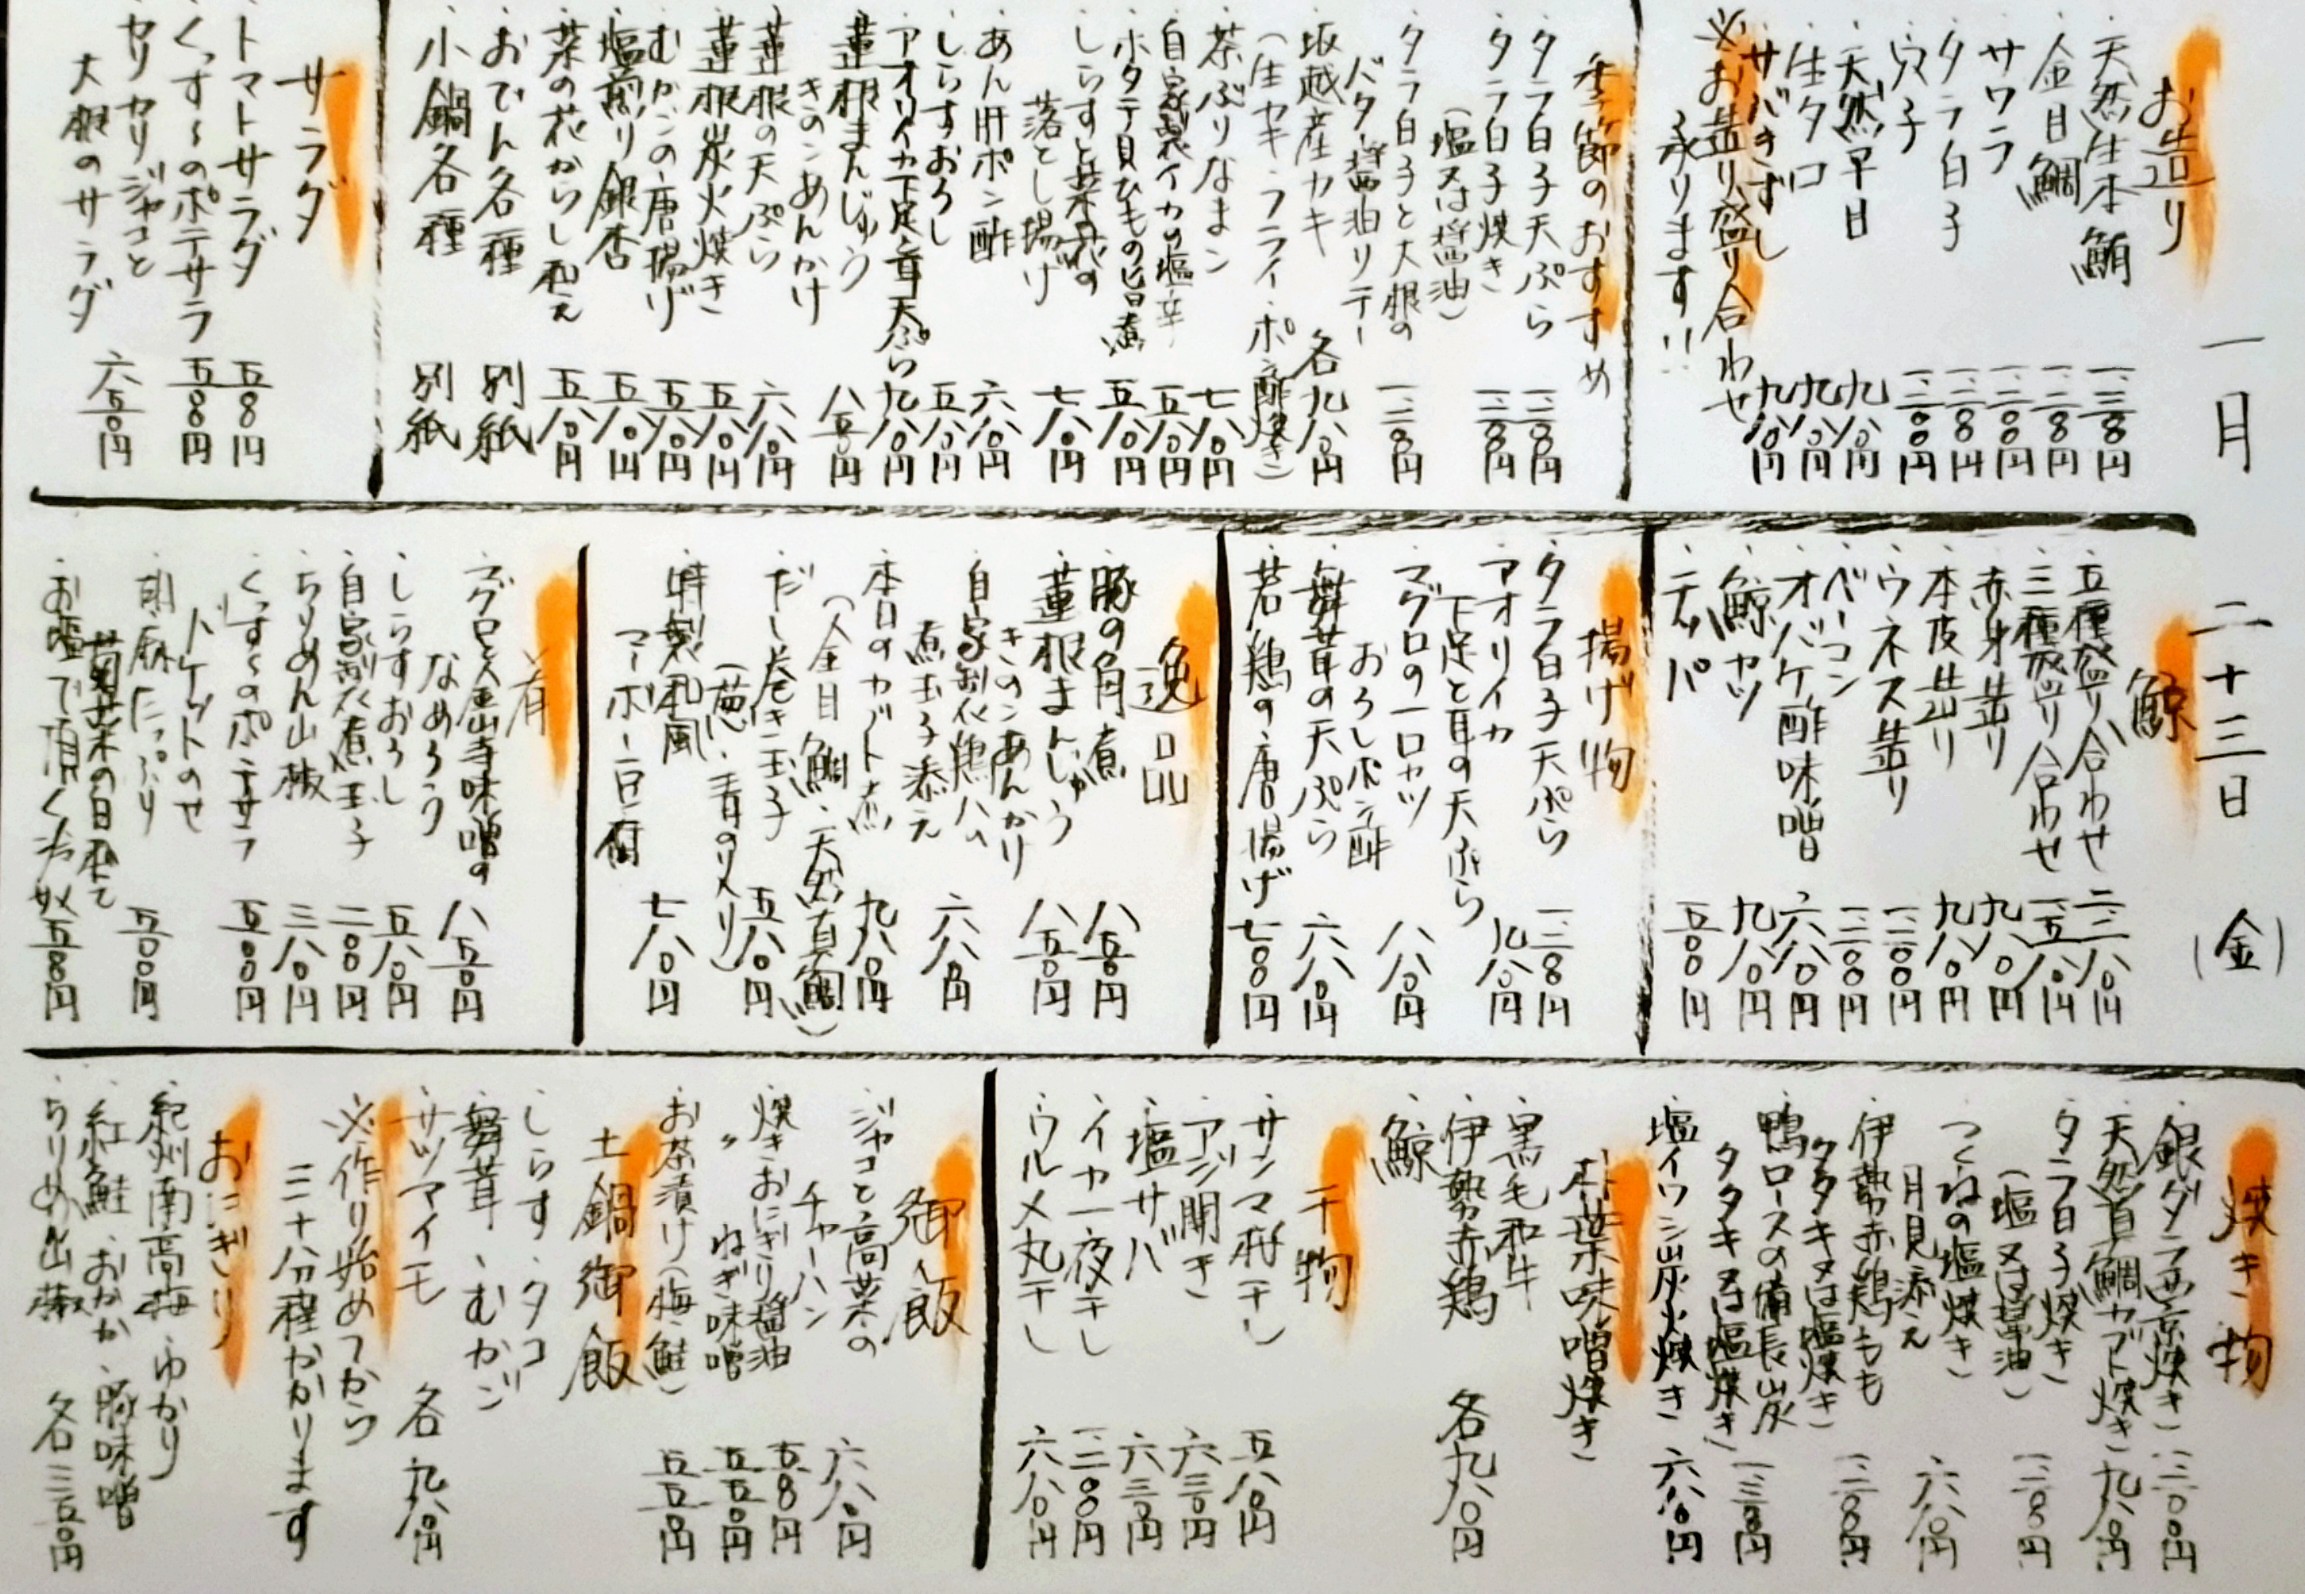 一月 二十三日 (金)
お造り
・天然生本鮪 一、三八〇円
・金目鯛 一、二八〇円
・サワラ 一、二〇〇円
・タラ白子 一、二八〇円
・穴子 一、二〇〇円
・天然平目 九八〇円
・生タコ 九八〇円
・サバきずし 九八〇円
※お造り盛り合わせ
承ります!!
季節のおすすめ
・タラ白子天ぷら 一、二八〇円
・タラ白子焼き
(塩又は醤油) 一、二八〇円
・タラ白子と大根の
バター醤油ソテー 一、二八〇円
・坂越産カキ 各九八〇円
(生カキ・フライ・ポン酢・焼き)
・茶ぶりなまこ 七八〇円
・自家製イカの塩辛 五八〇円
・ホタテ貝ひもの旨煮 五八〇円
・しらすと菜の花の
落とし揚げ 七八〇円
・あん肝ポン酢 六八〇円
・しらすおろし 五八〇円
・アオリイカ下足と耳天ぷら 九八〇円
・蓮根まんじゅう
きのこあんかけ 八五〇円
・蓮根の天ぷら 六八〇円
・蓮根炭火焼き 五八〇円
・むかごの唐揚げ 五八〇円
・塩煎り銀杏 五八〇円
・菜の花からし和え 五八〇円
・おでん各種 別紙
・小鍋各種 別紙
サラダ
・トマトサラダ 五八〇円
・くっす〜のポテサラ 五〇〇円
・カリカリジャコと
大根のサラダ 六五〇円
鯨
・五種盛り合わせ 二、三八〇円
・三種盛り合わせ 一、五八〇円
・赤身造り 九八〇円
・本皮造り 九八〇円
・ウネス造り 一、二〇〇円
・ベーコン 一、二〇〇円
・オバケ酢味噌 六八〇円
・鯨カツ 九八〇円
・テッパ 五〇〇円
揚げ物
・タラ白子天ぷら 一、二八〇円
・アオリイカ
下足と耳の天ぷら 九八〇円
・マグロの一口カツ
おろしポン酢 八八〇円
・舞茸の天ぷら 六八〇円
・若鶏の唐揚げ 七〇〇円
逸品
・豚の角煮 八五〇円
・蓮根まんじゅう
きのこあんかけ 八五〇円
・自家製鶏ハム
煮玉子添え 六八〇円
・本日のカブト煮 九八〇円
(金目鯛・天然真鯛)
・だし巻き玉子 五八〇円
(葱・青のり入り)
・特製和風
マーボー豆腐 七八〇円
肴
・マグロと金山寺味噌の
なめろう 八五〇円
・しらすおろし 五八〇円
・自家製煮玉子 二〇〇円
・ちりめん山椒 三八〇円
・くっす〜のポテサラ 五〇〇円
・胡麻たっぷり
菊菜の白和え 五〇〇円
・お塩で頂く冷奴 五〇〇円
焼き物
・銀ダラ西京焼き 一、二〇〇円
・天然真鯛カブト焼き 九八〇円
・タラ白子焼き
(塩又は醤油) 一、二八〇円
・つくねの塩焼き
月見添え 六八〇円
・伊勢赤鶏もも
タタキ又は塩焼き 一、二八〇円
・鴨ロースの備長炭
タタキ又は塩焼き 一、三八〇円
・塩イワシ炭火焼き 六八〇円
朴葉味噌焼き
・黒毛和牛
・伊勢赤鶏
・鯨 各九八〇円
干物
・サンマ丸干し 五八〇円
・アジ開き 六三〇円
・塩サバ 六三〇円
・イカ一夜干し 一、二〇〇円
・ウルメ丸干し 六八〇円
御飯
・ジャコと高菜の
チャーハン 六八〇円
・焼きおにぎり醤油 五〇〇円
・〃 ねぎ味噌 五五〇円
・お茶漬け(梅・鮭) 五五〇円
土鍋御飯
・しらす・タコ
・舞茸・むかご
・サツマイモ 各九八〇円
※作り始めてから
三十分程かかります
おにぎり
・紀州南高梅・ゆかり
・紅鮭・おかか・豚味噌
・ちりめん山椒 各三五〇円